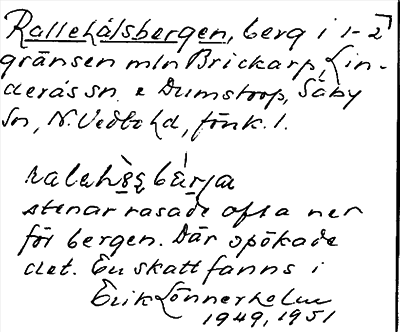 Rallehålsbergen, berg i 1-2
gränsen mln Brickarp, Lin-
derås sn. & Dumstorp, Säby
sn, N. Vedbo hd, fönk. l.
stenar rasade ofta ner
för bergen. Där spökade
det. En skatt fanns i
Erik Lönnerholm
1949, 1951